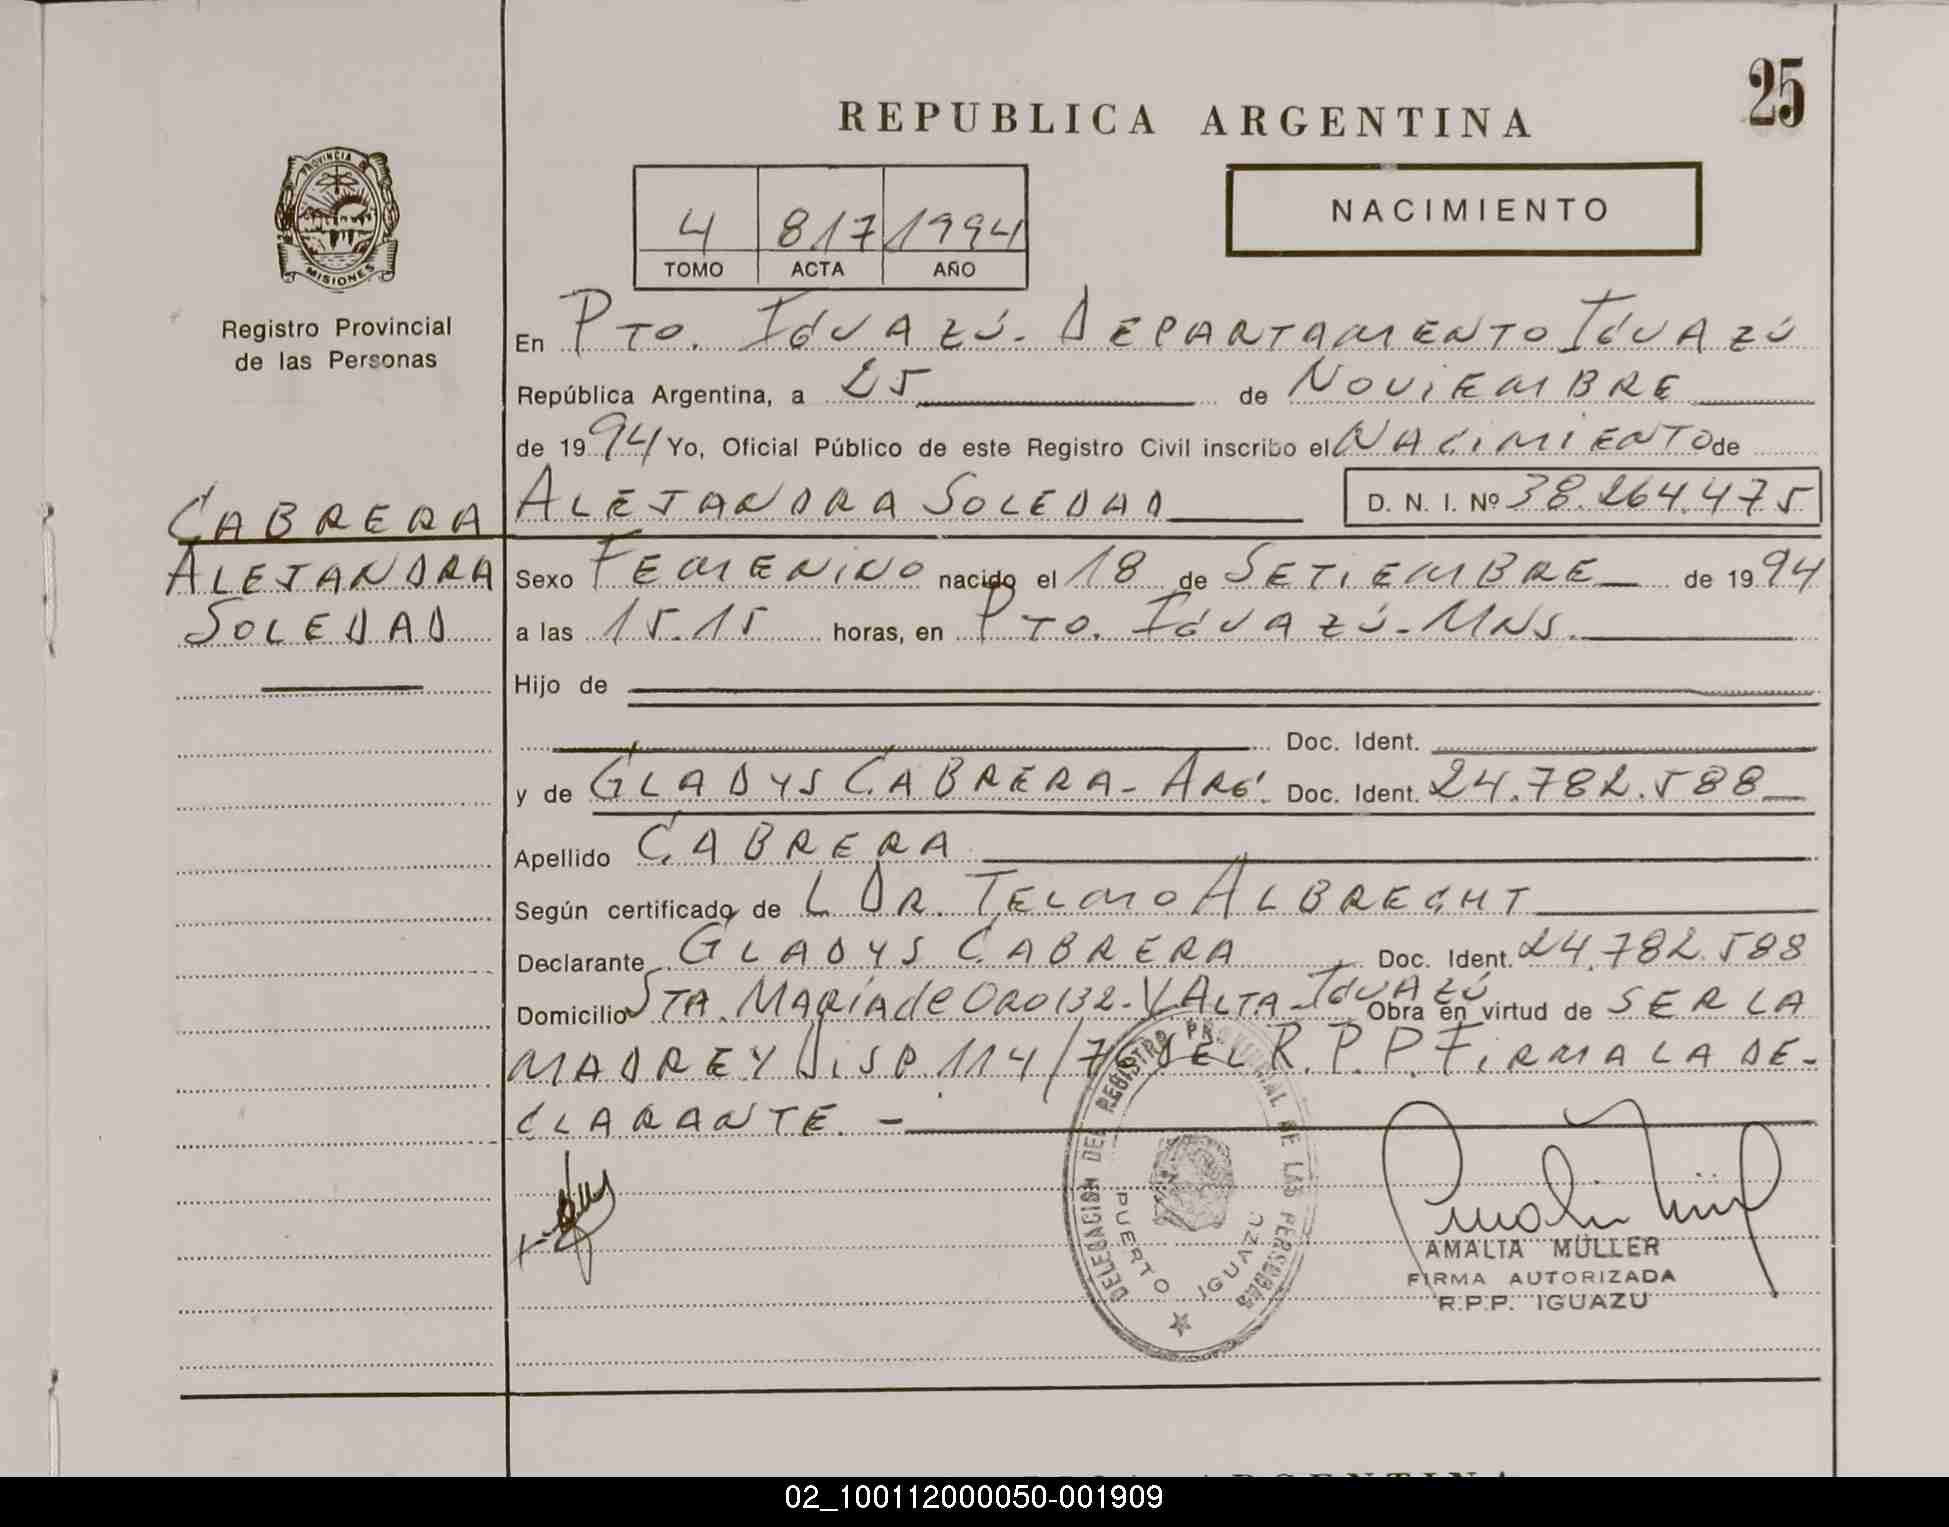 25
REPUBLICA ARGENTINA
NACIMIENTO
4 817 1994
TOMO ACTA AÑO
PROVINCIA DE
MISIONES
Registro Provincial
de las Personas
CABRERA
ALEJANDRA
SOLEDAD
En PTO. IGUAZÚ - DEPARTAMENTO IGUAZÚ
República Argentina, a 25 de NOVIEMBRE
de 1994 Yo, Oficial Público de este Registro Civil inscribo el NACIMIENTO de
ALEJANDRA SOLEDAD D. N. I. Nº 38.264.475
Sexo FEMENINO nacido el 18 de SETIEMBRE de 1994
a las 15.15 horas, en PTO. IGUAZÚ - MNS.
Hijo de
Doc. Ident.
y de GLADYS CABRERA - ARG. Doc. Ident. 24.782.588
Apellido CABRERA
Según certificado de L DR. TELMO ALBRECHT
Declarante GLADYS CABRERA Doc. Ident. 24.782.588
Domicilio STA. MARÍA de ORO 132 - V ALTA - IGUAZÚ Obra en virtud de SER LA
MADRE Y DISP. 114/76 DEL R.P.P. FIRMA LA DE-
CLARANTE. -
DELEGACION DEL REGISTRO PROVINCIAL DE LAS PERSONAS
PUERTO IGUAZU
AMALIA MÜLLER
FIRMA AUTORIZADA
R.P.P. IGUAZU
02_100112000050-001909